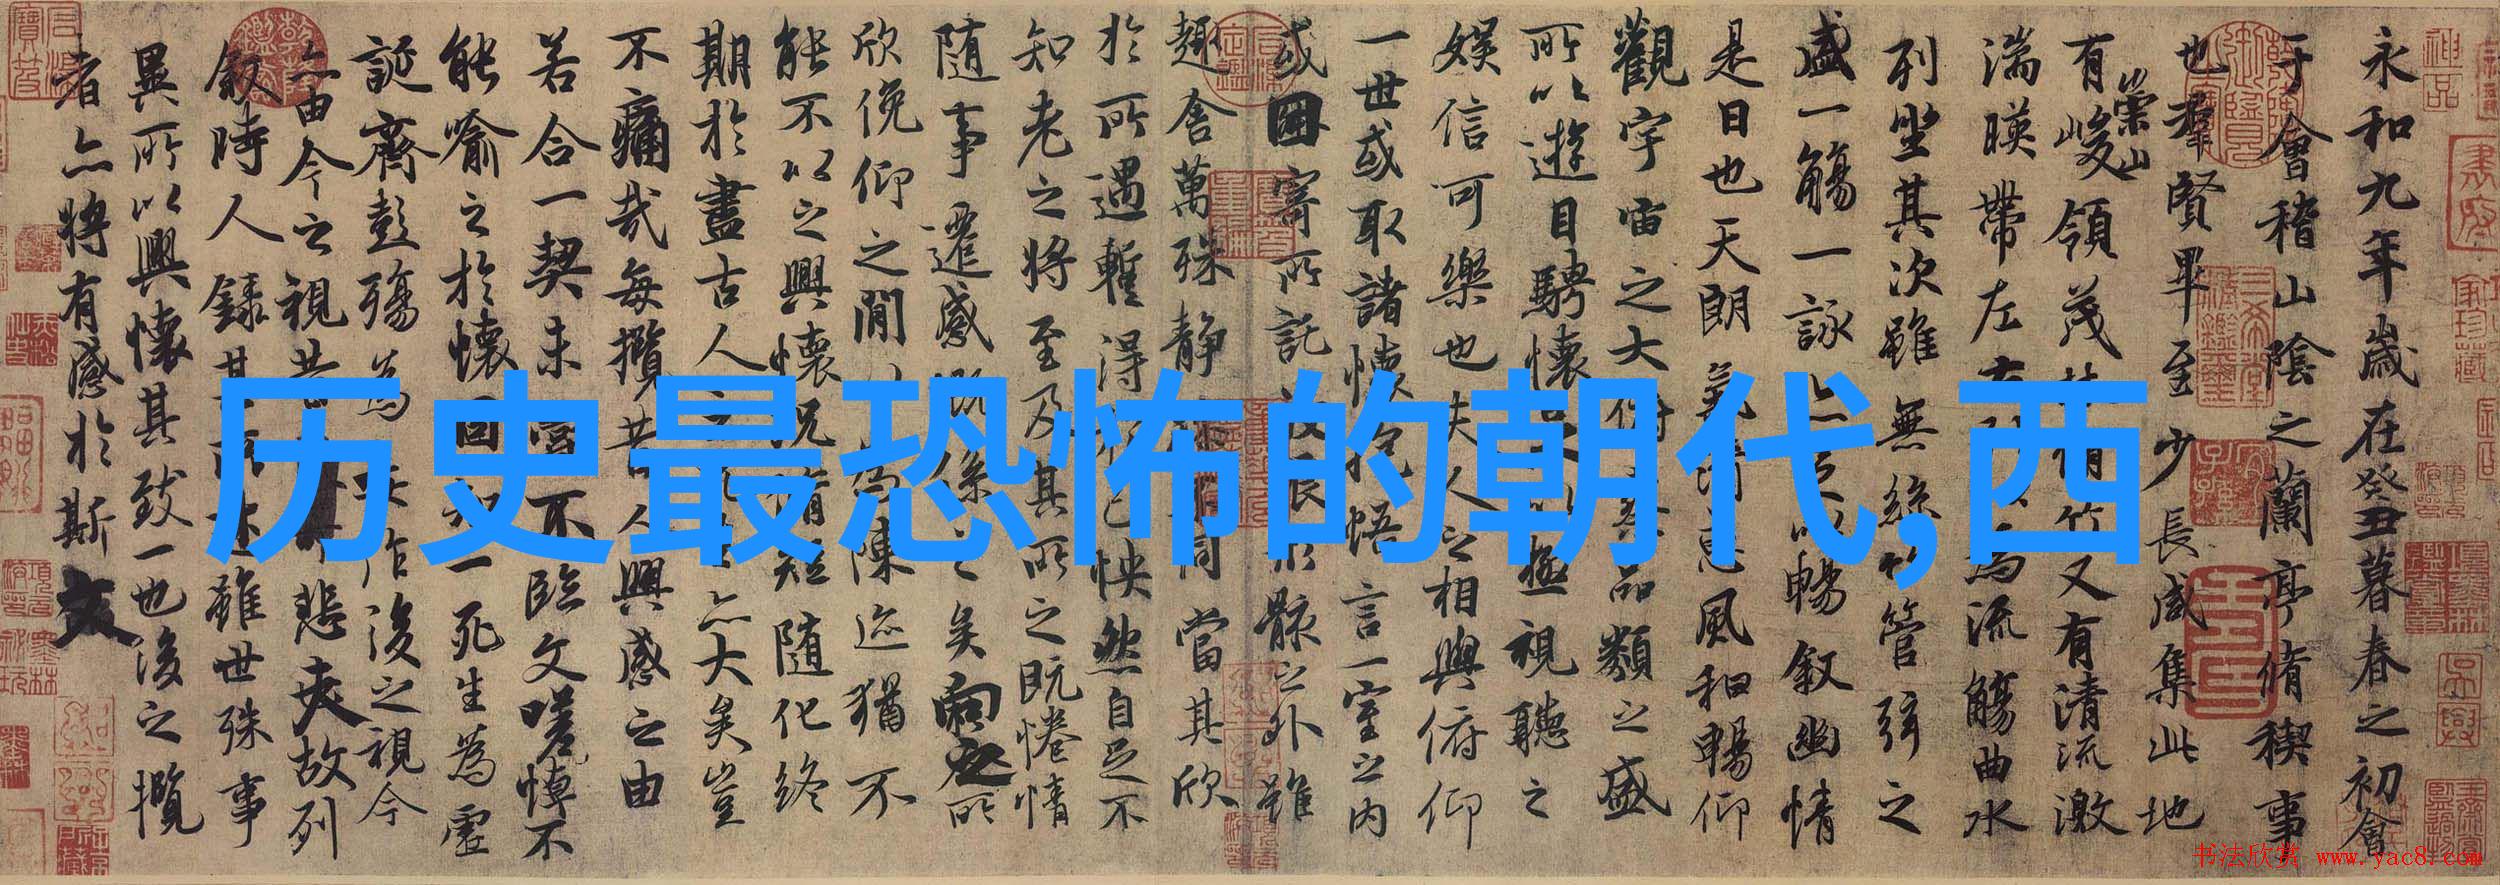 历史最恐怖的朝代,西
永和九年歲在癸丑暮春之初會
于會稽山陰之蘭亭脩稧事
也羣賢畢至少長咸集此地
有崇山峻領茂林脩竹又有清流激
湍暎帶左右為流觴曲水
列坐其次雖無絲竹管弦之
盛一觴一詠亦足以暢叙幽情
是日也天朗氣清惠風和暢仰
觀宇宙之大俯察品類之盛
所以遊目騁懷極視聽之
娛信可樂也夫人之相與俯仰
一世或取諸懷抱悟言一室之內
或因寄所託放浪形骸之外雖
趣舍萬殊静不同當其欣
於所遇暫得於己怏然自足不
知老之將至及其所之既惓情
隨事遷感慨係之矣向之所
欣俛仰之閒以為陳迹猶不
能不以之興懷況脩短隨化終
期於盡古人云死生亦大矣豈
不痛哉每攬昔人興感之由
若合一契未嘗不臨文嗟悼不
能喻之於懷固知一死生為虛
誕齊彭殤為妄作後之視今
亦由今之視昔悲夫故列
敘時人錄其所述雖世殊事
異所以興懷其致一也後之攬
者亦將有感於斯文
书法欣赏 www.yac8.com